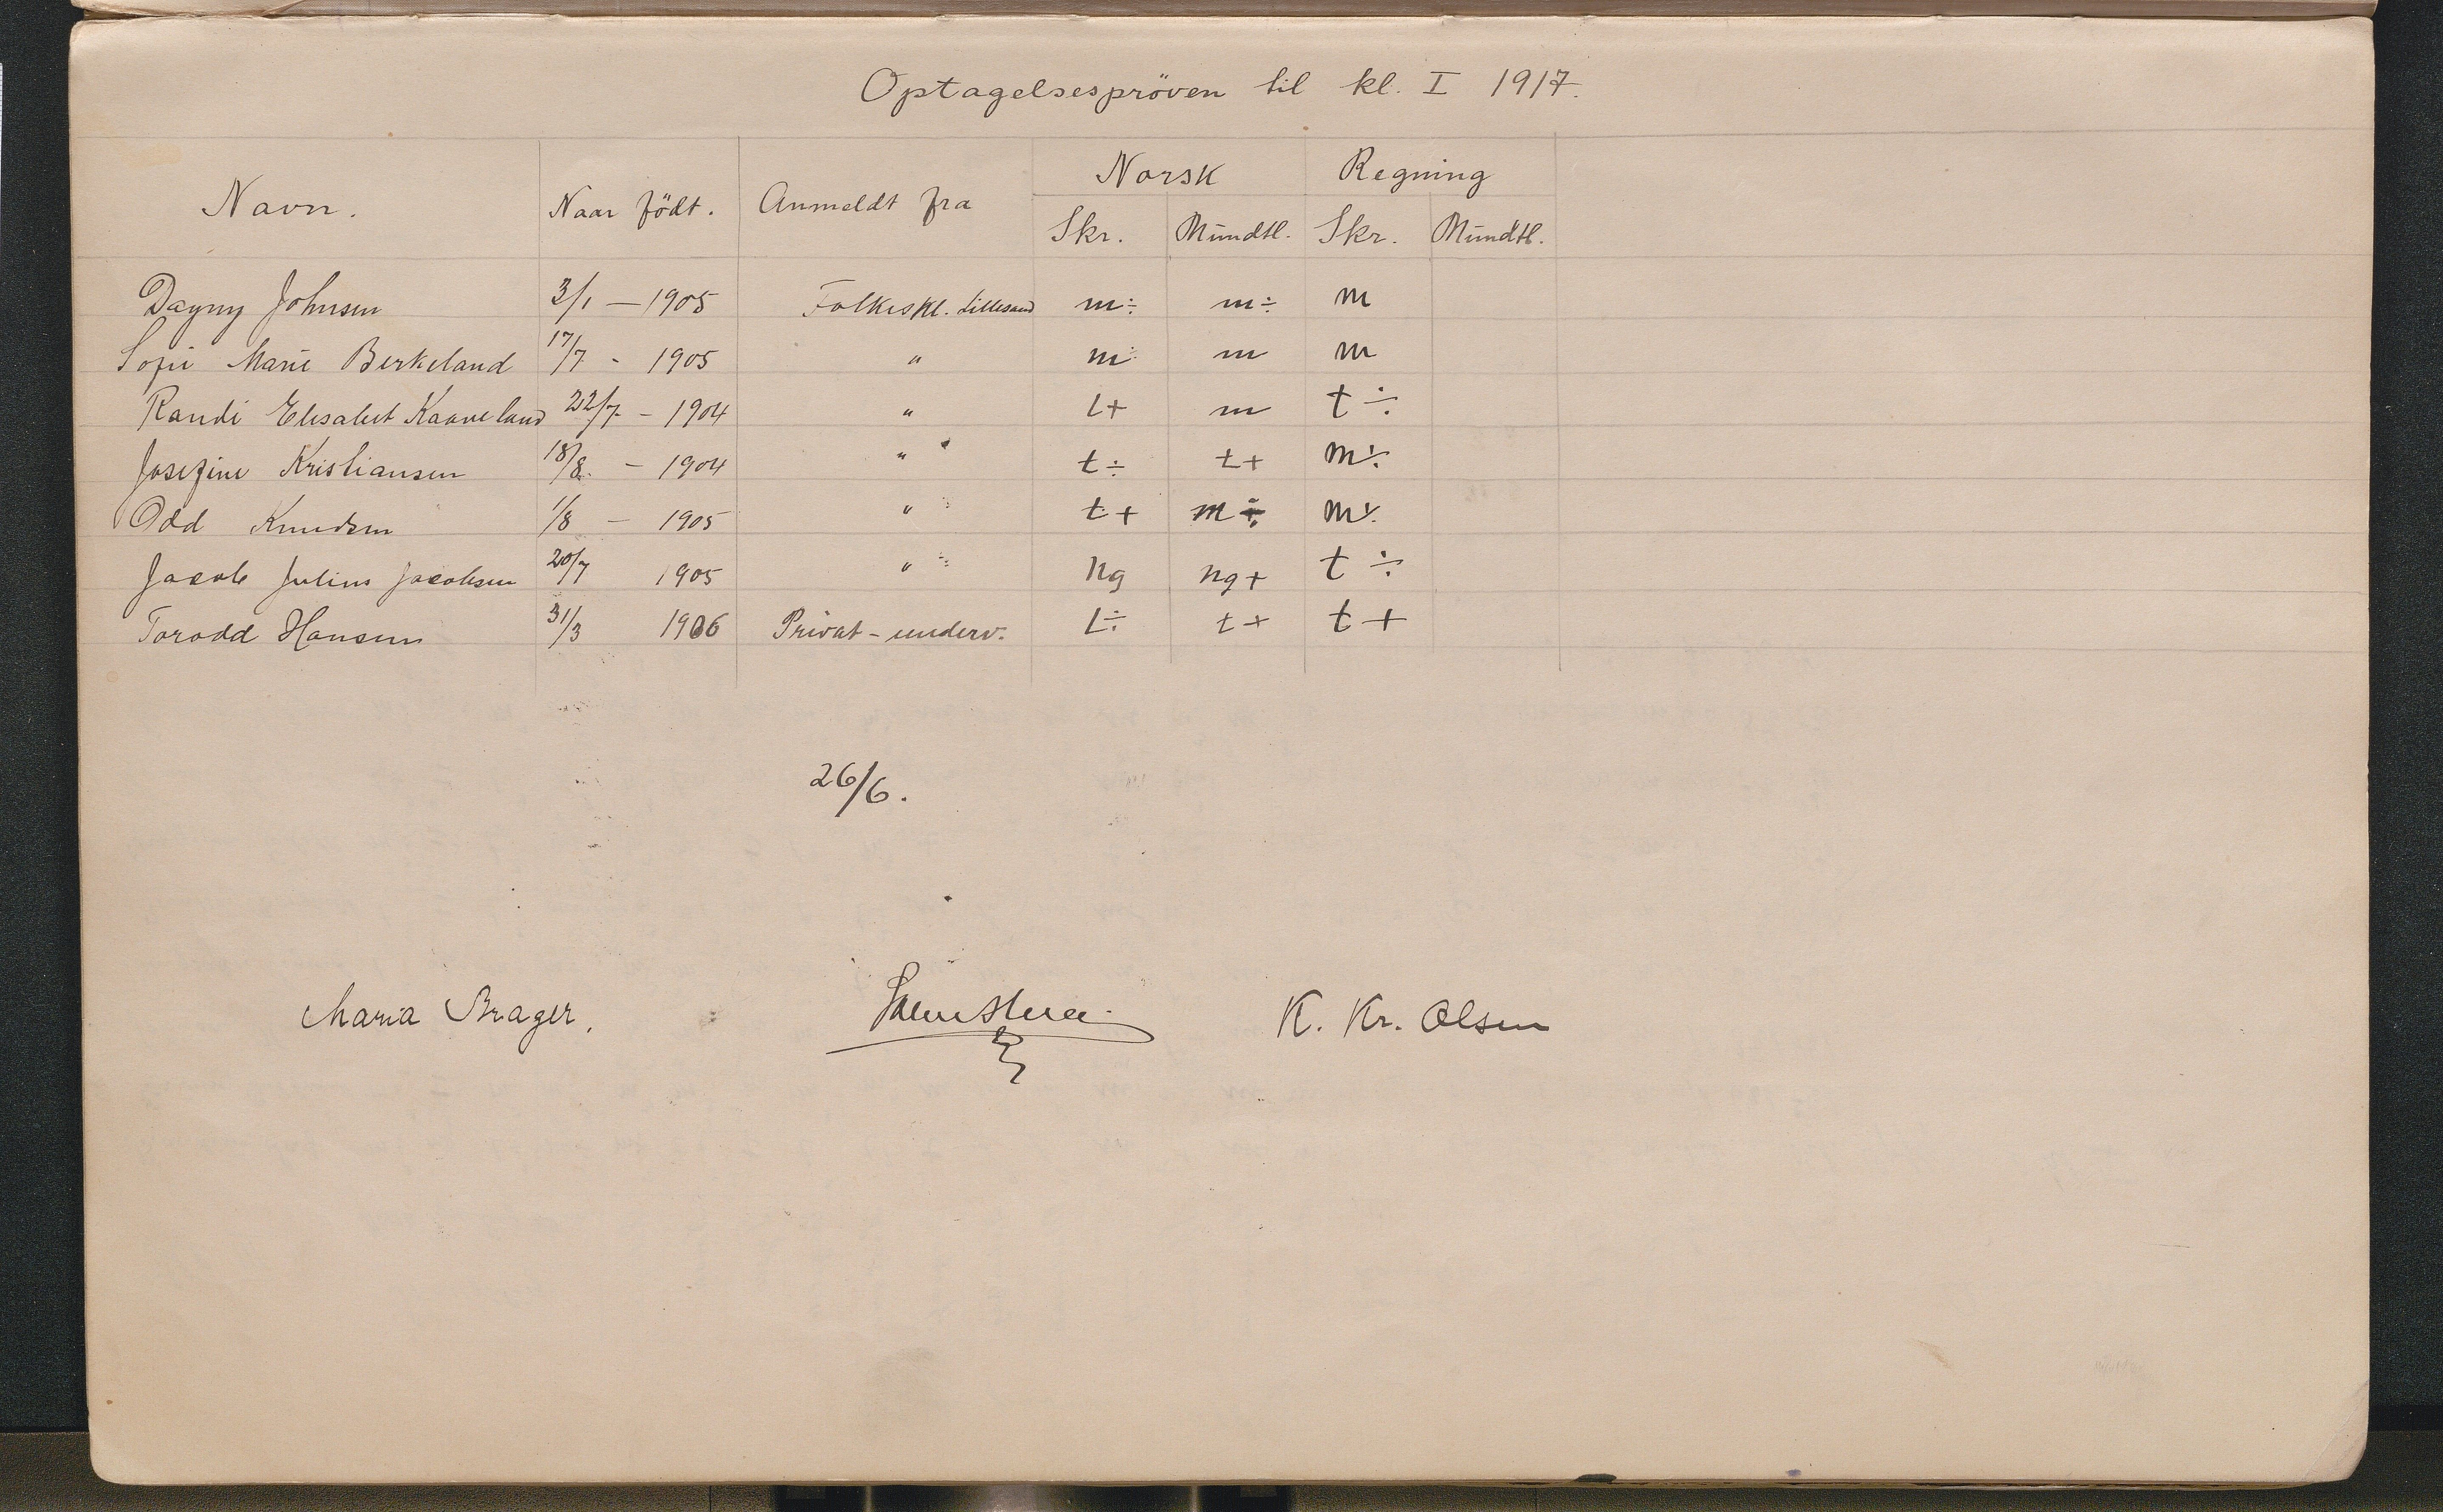 Optagelsespröven til kl. I 1917.
Navn. Naar födt. Anmeldt fra Norsk Regning
Skr. Mündtl. Skr. Mündtl.
Dagny Johnsen 3/1 — 1905 Folkeskl. Lillesand m÷ m÷ m
Sofie Marie Berkeland 17/7 - 1905 " m m m
Randi Elisabet Kaaveland 22/7 - 1904 " t+ m t÷
Josefine Kristiansen 18/8. - 1904 " t÷ t+ m÷
Odd Knudsen 1/8 - 1905 " t+ m÷ m÷
Jacob Julius Jacobsen 20/7 1905 " ng ng+ t÷
Torodd Hansen 31/3 1906 Privat-underv. t÷ t+ t+
26/6.
Maria Brager. K. Kr. Olsen